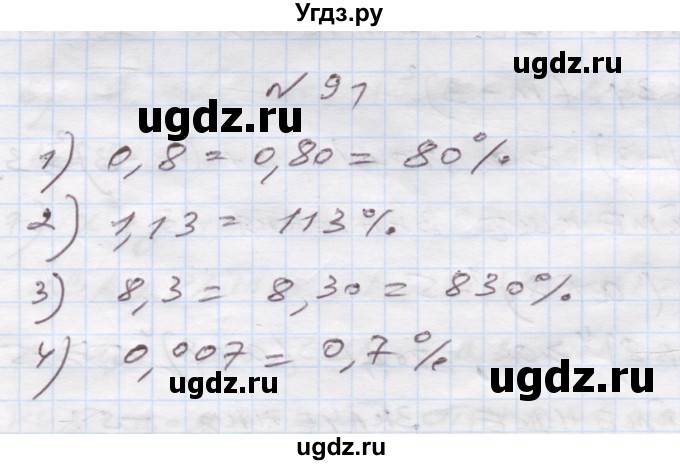 Угдз.ру
№ 91
1) 0,8 = 0,80 = 80%.
2) 1,13 = 113%.
3) 8,3 = 8,30 = 830%.
4) 0,007 = 0,7%
ugdz.ru
ugdz.ru
ugdz.ru
ugdz.ru
ugdz.ru